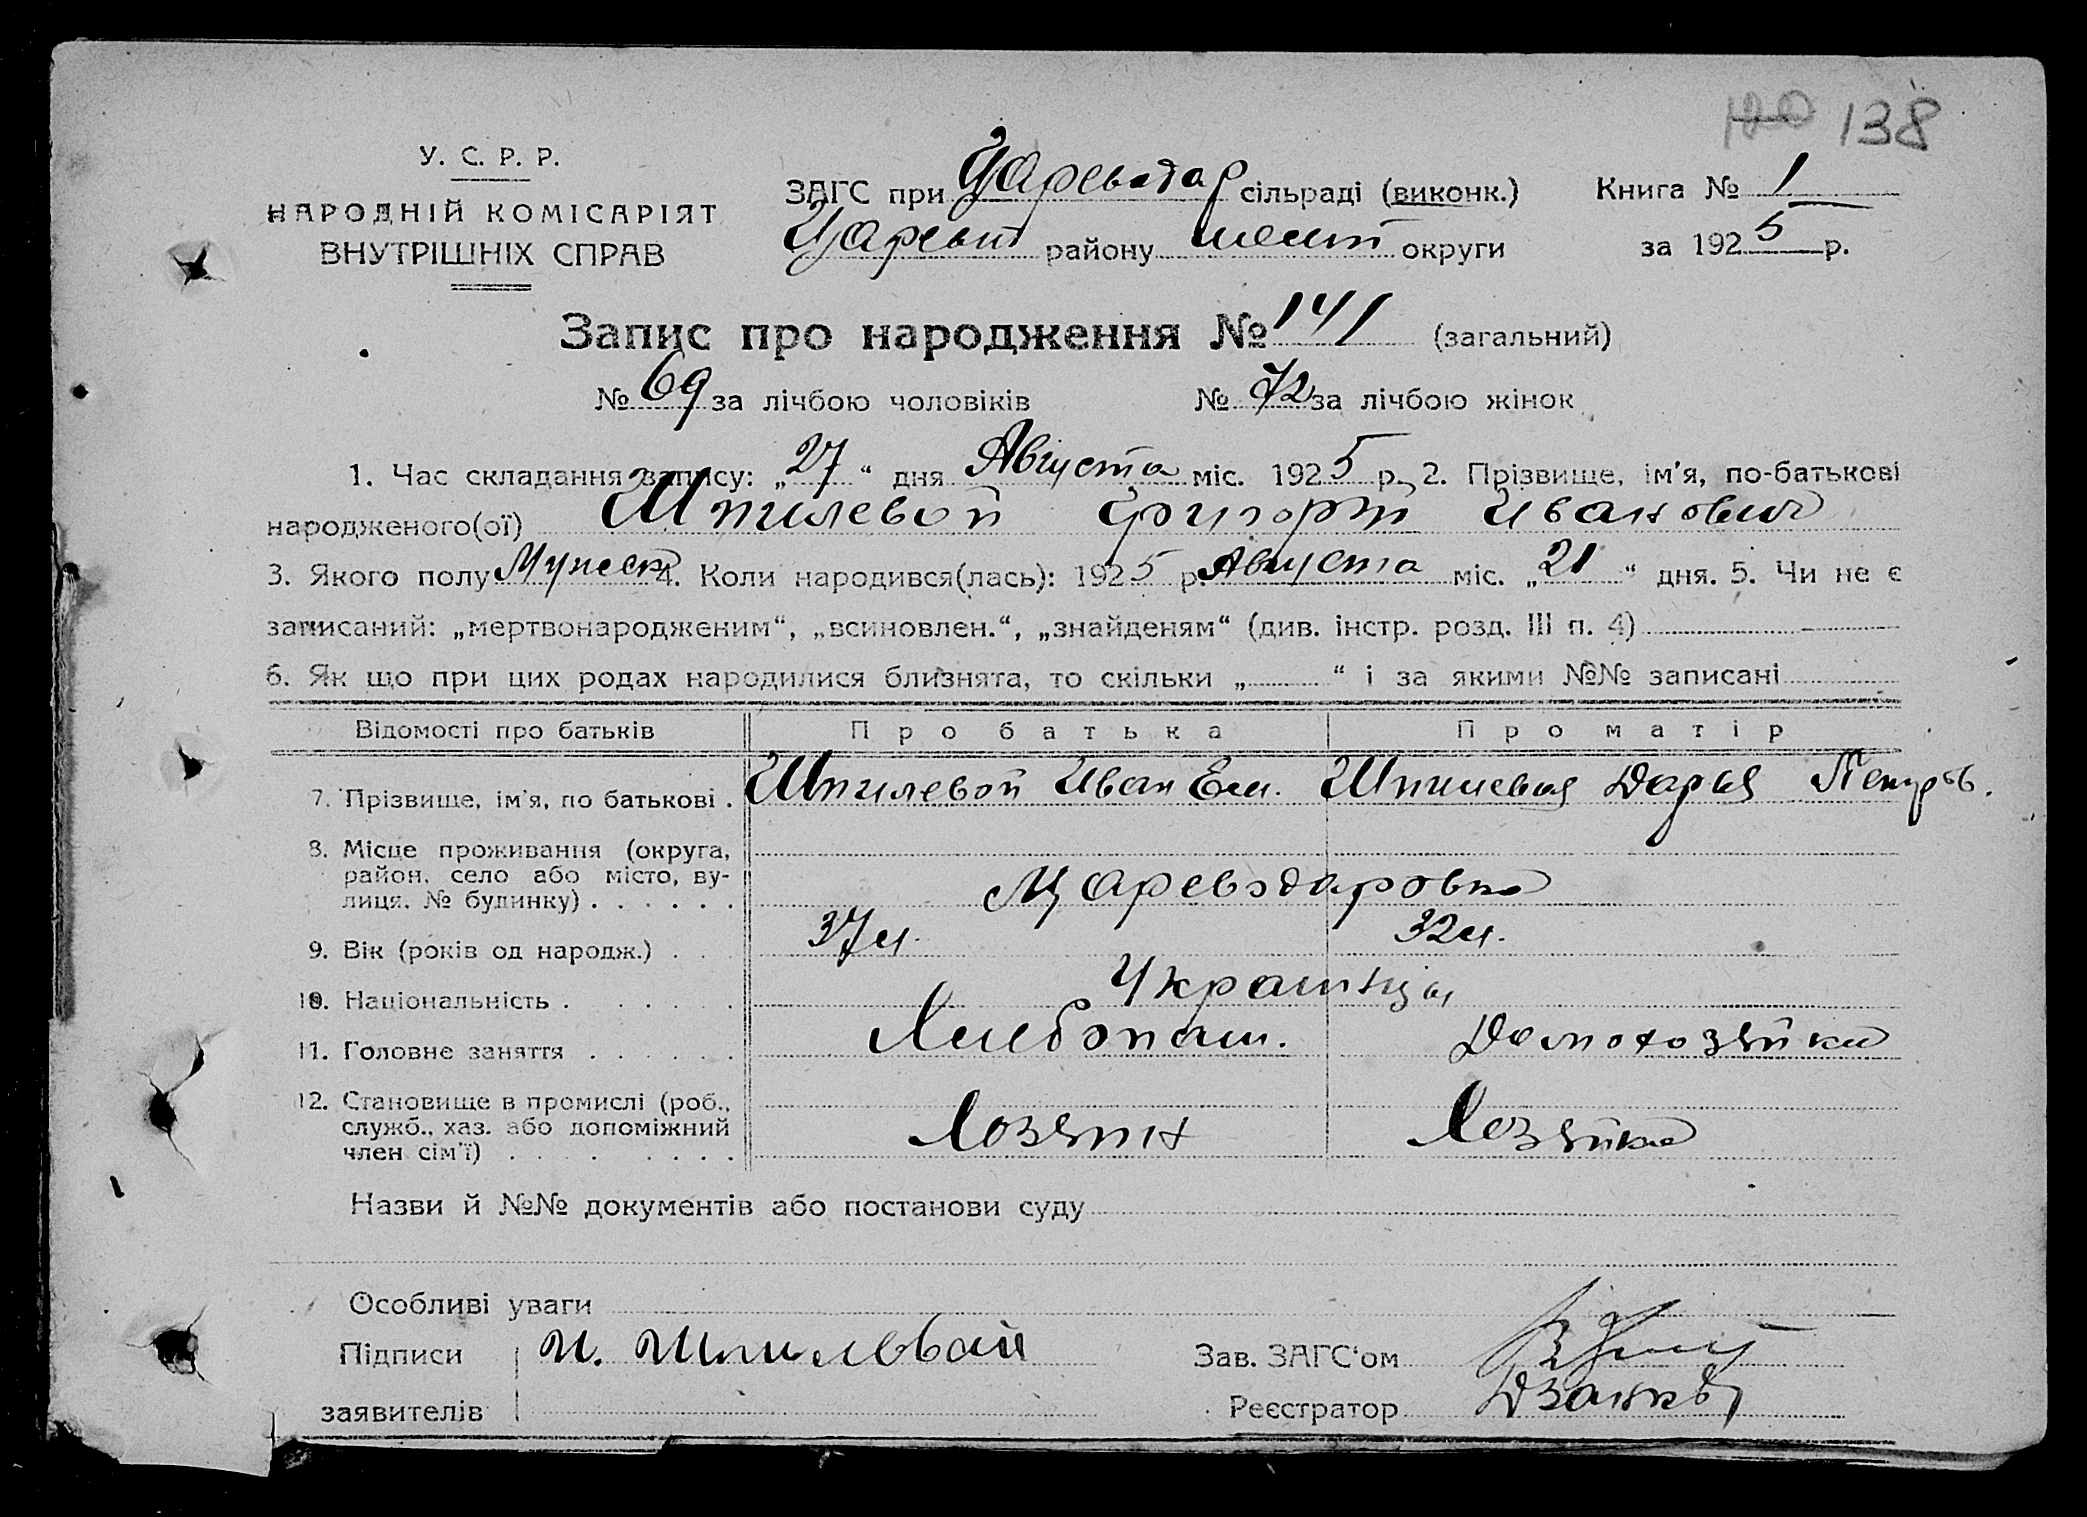 138
У. С. Р. Р.
НАРОДНІЙ КОМІСАРІЯТ
ВНУТРІШНІХ СПРАВ
ЗАГС при Царевдар сільраді (виконк.) Книга № 1
району округи за 1925 р.
Запис про народження № 141 (загальний)
№ 69 за лічбою чоловіків № 72 за лічбою жінок
1. Час складання запису: „27“ дня Августа міс. 1925 р. 2. Прізвище, ім'я, по-батькові
народженого(ої) Шпилевой Григорій Иванович
3. Якого полу Мужеск 4. Коли народився(лась): 1925 р. Августа міс. „21“ дня. 5. Чи не є
записаний: „мертвонародженим“, „всиновлен.“, „знайденям“ (див. інстр. розд. III п. 4)
6. Як що при цих родах народилися близнята, то скільки „ “ і за якими №№ записані
Відомості про батьків Про батька Про матір
7. Прізвище, ім'я, по батькові . Шпилевой Иван Ем. Шпилевая Дарья Петров.
8. Місце проживання (округа,
район, село або місто, ву-
лиця, № будинку) . . . . . . Царевдаровка
9. Вік (років од народж.) . . . 37 л. 32 л.
10. Національність . . . . . . Украинцы
11. Головне заняття . . . . . . Хлебопаш. Домохозяйка
12. Становище в промислі (роб.,
служб., хаз. або допоміжний
член сім'ї) . . . . . . . Хозяин Хозяйка
Назви й №№ документів або постанови суду
Особливі уваги
Підписи И. Шпилевай Зав. ЗАГС'ом
заявителів Реєстратор